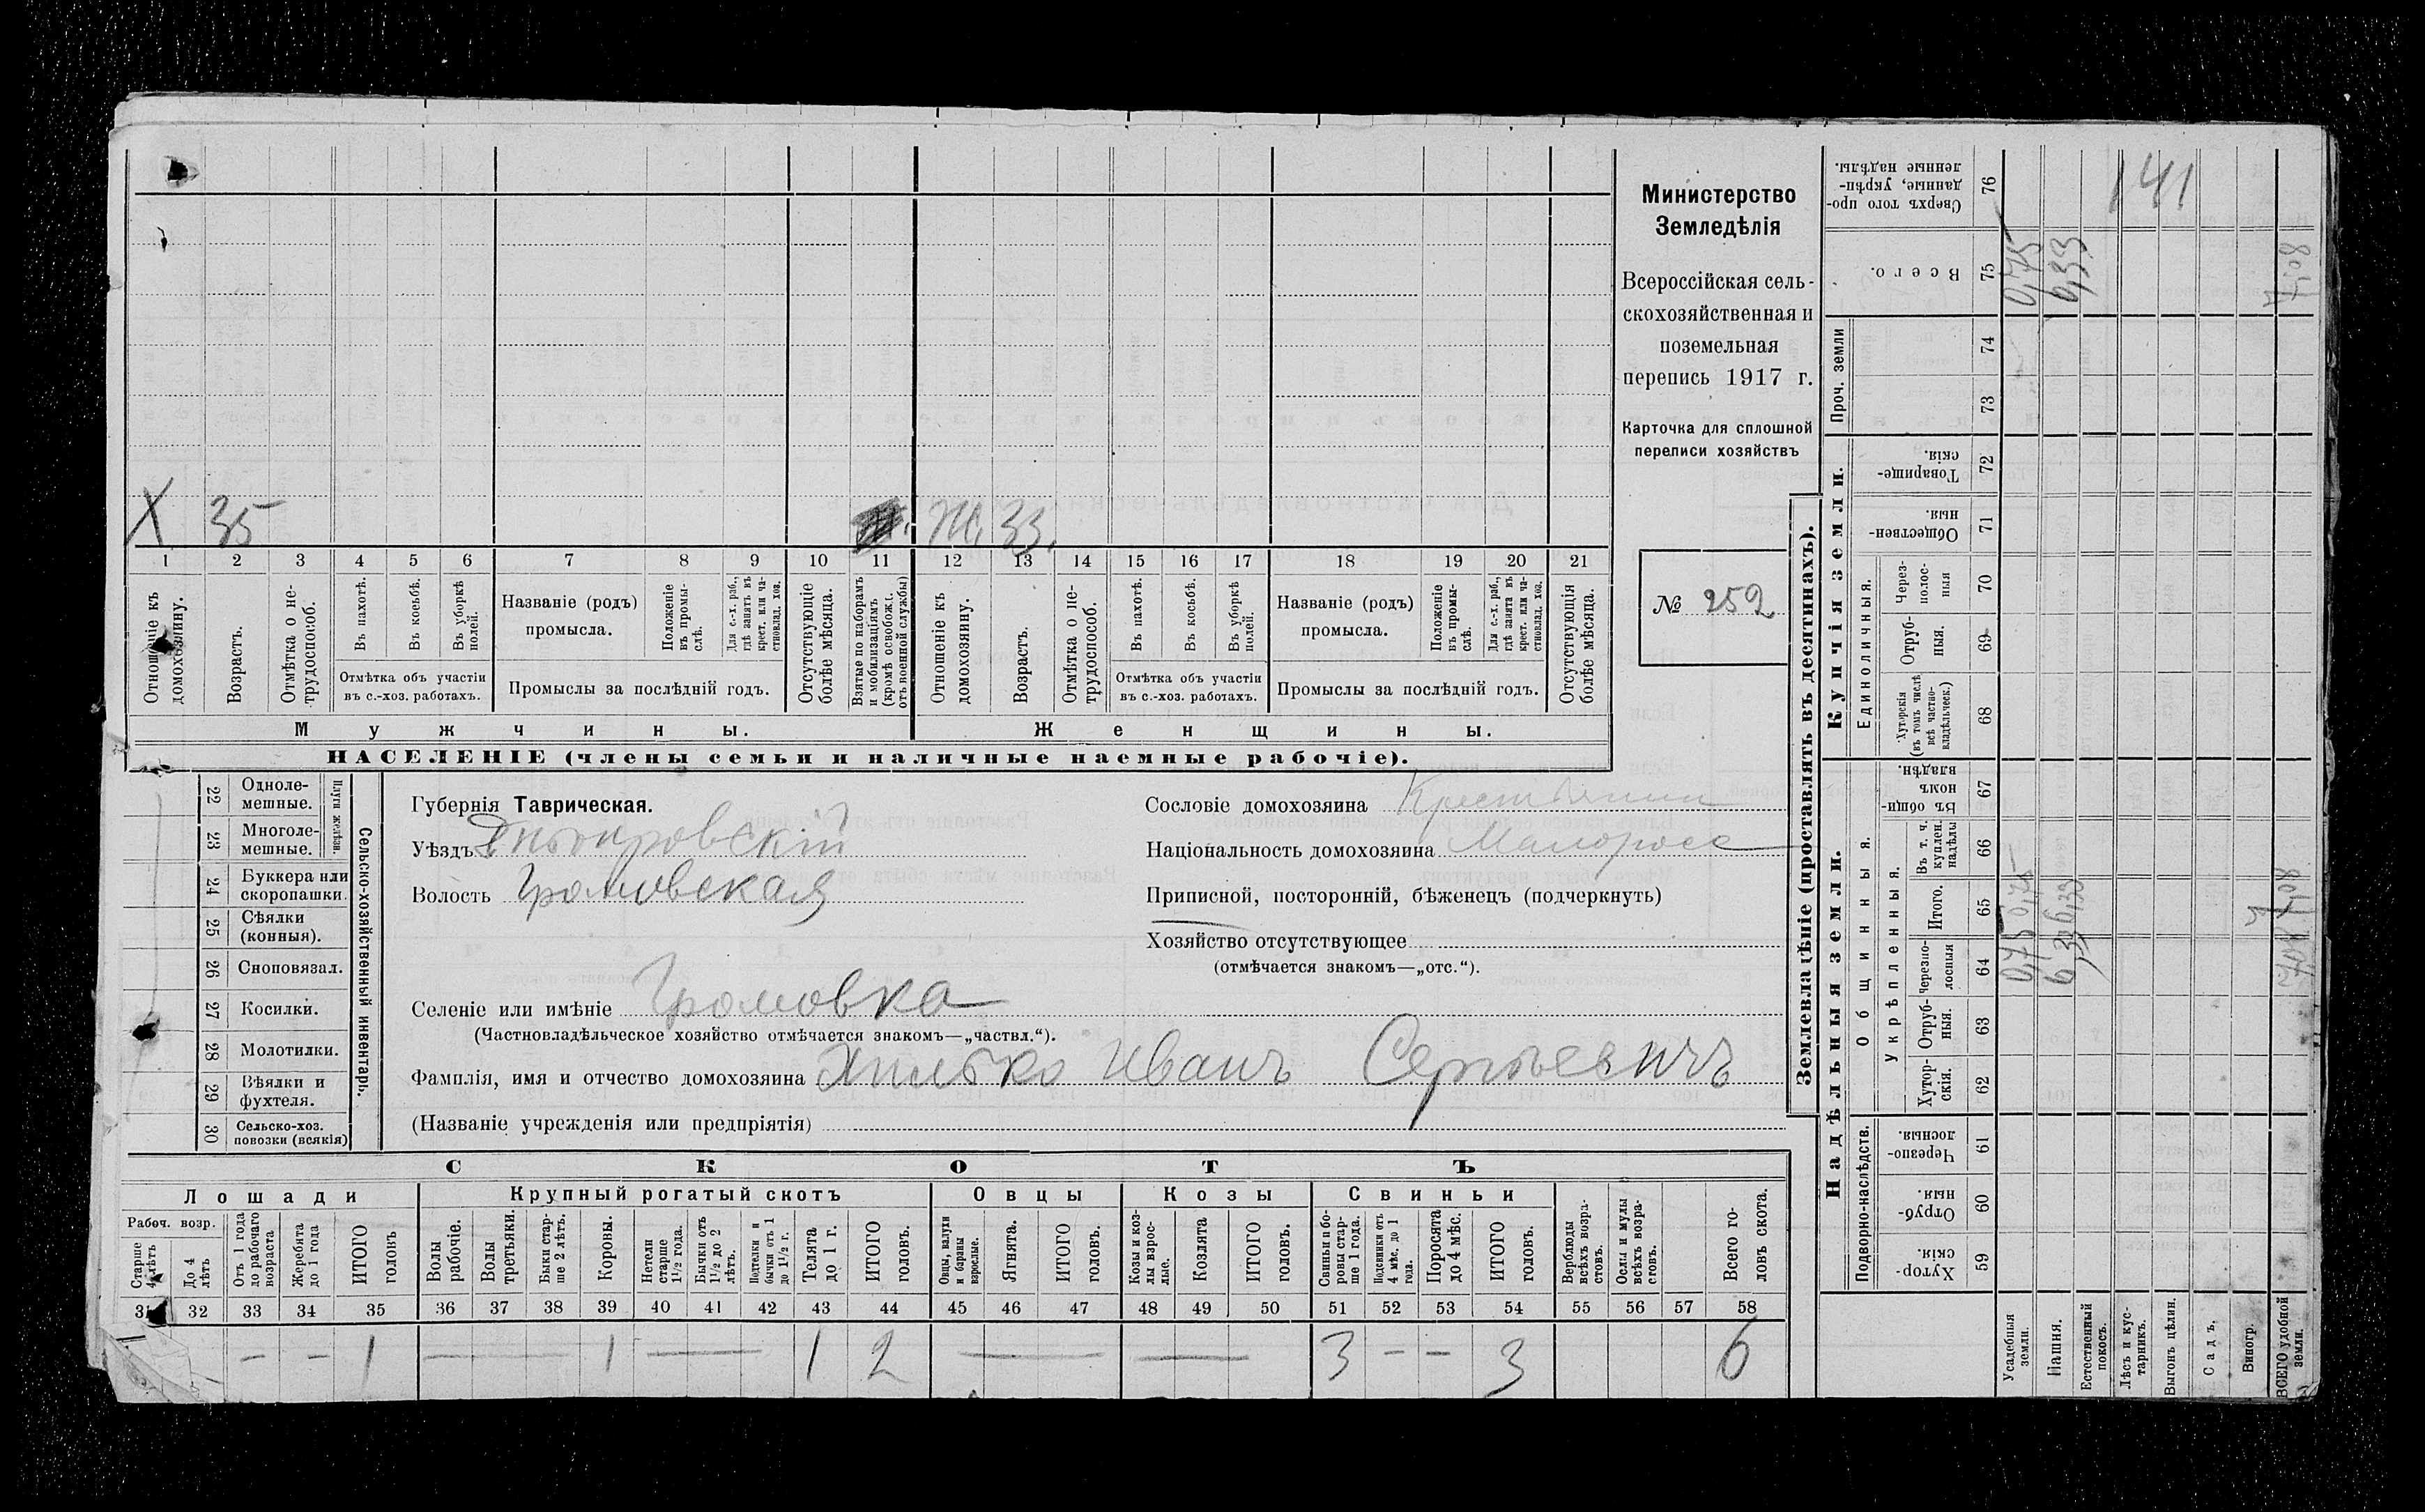 Министерство
Земледѣлія
Всероссійская сель-
скохозяйственная и
поземельная
перепись 1917 г.
Карточка для сплошной
переписи хозяйствъ
№ 252
Х 35
Ж. 33.
1 2 3 4 5 6 7 8 9 10 11 12 13 14 15 16 17 18 19 20 21
Отношеніе къ домохозяину.
Возрастъ.
Отмѣтка о не-трудоспособ.
Въ пахотѣ.
Въ косьбѣ.
Въ уборкѣ полей.
Отмѣтка объ участіи въ с.-хоз. работахъ.
Названіе (родъ) промысла.
Положеніе въ промы-слѣ.
Для с.-х. раб., гдѣ занятъ въ крест. или ча-стновлад. хоз.
Промыслы за послѣдній годъ.
Отсутствующіе болѣе мѣсяца.
Взятые по наборамъ и мобилизаціямъ (кромѣ освобож. отъ военной службы)
Отношеніе къ домохозяину.
Возрастъ.
Отмѣтка о не-трудоспособ.
Въ пахотѣ.
Въ косьбѣ.
Въ уборкѣ полей.
Отмѣтка объ участіи въ с.-хоз. работахъ.
Названіе (родъ) промысла.
Положеніе въ промы-слѣ.
Для с.-х. раб., гдѣ занята въ крест. или ча-стновлад. хоз.
Промыслы за послѣдній годъ.
Отсутствующія болѣе мѣсяца.
Мужчины.
Женщины.
НАСЕЛЕНІЕ (члены семьи и наличные наемные рабочіе).
Сельско-хозяйственный инвентарь.
Плуги желѣзн.
22 Одноле-мешные.
23 Многоле-мешные.
24 Буккера или скоропашки.
25 Сѣялки (конныя).
26 Сноповязал.
27 Косилки.
28 Молотилки.
29 Вѣялки и фухтеля.
30 Сельско-хоз. повозки (всякія)
Губернія Таврическая.
Уѣздъ Днѣпровскій
Волость Громовская
Селеніе или имѣніе Громовка
(Частновладѣльческое хозяйство отмѣчается знакомъ—„частвл.“).
Фамилія, имя и отчество домохозяина Хилько Иванъ Сергѣевичъ
(Названіе учрежденія или предпріятія)
Сословіе домохозяина Крестьянин
Національность домохозяина Малоросс
Приписной, посторонній, бѣженецъ (подчеркнуть)
Хозяйство отсутствующее
(отмѣчается знакомъ—„отс.“).
СКОТЪ
Лошади
Крупный рогатый скотъ
Овцы
Козы
Свиньи
Рабоч. возр.
Старше 4 лѣтъ
До 4 лѣтъ
Отъ 1 года до рабочаго возраста
Жеребята до 1 года
ИТОГО головъ
Волы рабочіе.
Волы третьяки.
Быки стар-ше 2 лѣтъ.
Коровы.
Нетели старше 1½ года.
Бычки отъ 1½ до 2 лѣтъ.
Подтелки и бычки отъ 1 до 1½ г.
Телята до 1 г.
ИТОГО головъ.
Овцы, валухи и бараны взрослые.
Ягнята.
ИТОГО головъ.
Козы и коз-лы взрос-лые.
Козлята
ИТОГО головъ.
Свиньи и бо-ровы стар-ше 1 года.
Подсвинки отъ 4 мѣс. до 1 года.
Поросята до 4 мѣс.
ИТОГО головъ.
Верблюды всѣхъ возра-стовъ.
Ослы и мулы всѣхъ возра-стовъ.
Всего го-ловъ скота.
32 33 34 35 36 37 38 39 40 41 42 43 44 45 46 47 48 49 50 51 52 53 54 55 56 57 58
— — 1 — 1 — 1 2 — — 3 — — 3 6
Землевладѣніе (проставлять въ десятинахъ).
Надѣльныя земли.
Купчія земли.
Проч. земли
Подворно-наслѣдств.
Общинныя.
Укрѣпленныя.
Единоличныя.
59 Хутор-скія.
60 Отруб-ныя.
61 Черезпо-лосныя.
62 Хутор-скія.
63 Отруб-ныя.
64 Черезпо-лосныя
65 Итого.
66 Въ т. ч. куплен. надѣлы
67 Въ общи-номъ владѣн.
68 Хуторскія (въ томъ числѣ всѣ частно-владѣльческ.)
69 Отруб-ныя.
70 Через-полос-ныя
71 Обществен-ныя.
72 Товарище-скія.
73
74
75 Всего.
76 Сверхъ того про-данные, укрѣп-ленные надѣлы.
Усадебныя земли. 0,75 0,75 0,75
Пашня. 6,33 6,33 6,33
Естественный покосъ.
Лѣсъ и кус-тарникъ.
Выгонъ цѣлин.
Садъ.
Виногр.
ВСЕГО удобной земли. 7,08 7,08 7,08
141